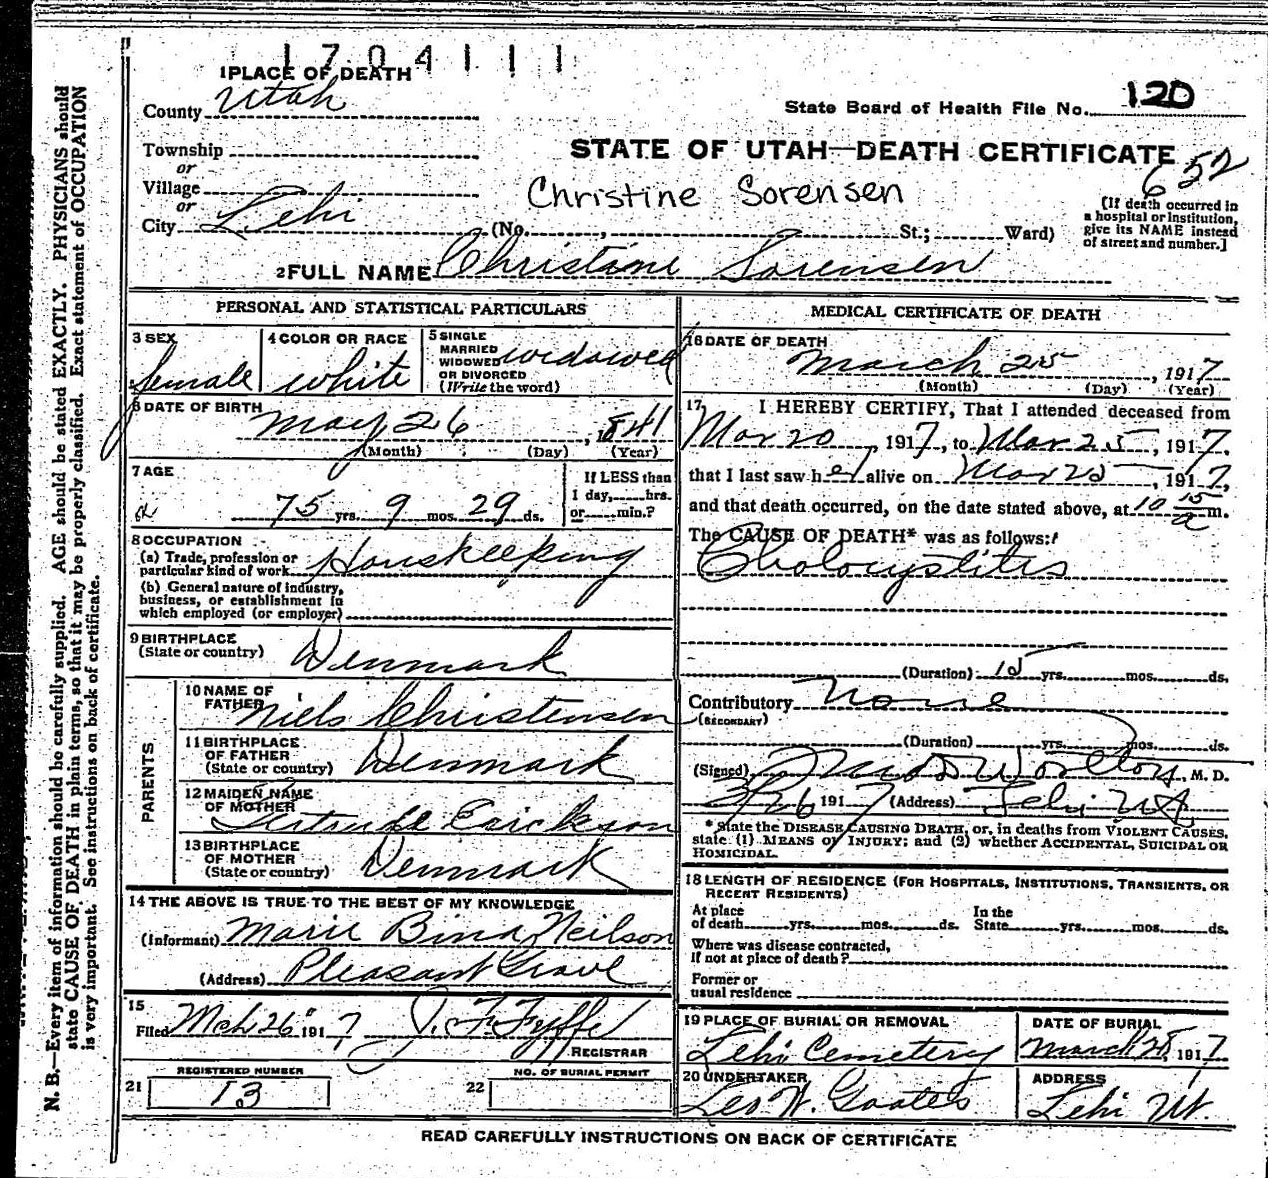 1704111
1 PLACE OF DEATH
County Utah
State Board of Health File No. 120
Township
or
Village
or
City Lehi
STATE OF UTAH—DEATH CERTIFICATE
652
Christine Sorensen
[If death occurred in
a hospital or institution,
give its NAME instead
of street and number.]
(No. , St.; Ward)
2 FULL NAME Christine Sorensen
PERSONAL AND STATISTICAL PARTICULARS
3 SEX
female
4 COLOR OR RACE
white
5 SINGLE
MARRIED
WIDOWED
OR DIVORCED
(Write the word)
widowed
6 DATE OF BIRTH
May 26, 1841
(Month) (Day) (Year)
7 AGE
75 yrs. 9 mos. 29 ds.
If LESS than
1 day, hrs.
or min.?
8 OCCUPATION
(a) Trade, profession or
particular kind of work Houskeeping
(b) General nature of industry,
business, or establishment in
which employed (or employer)
9 BIRTHPLACE
(State or country) Denmark
PARENTS
10 NAME OF
FATHER Niels Christensen
11 BIRTHPLACE
OF FATHER
(State or country) Denmark
12 MAIDEN NAME
OF MOTHER Gertrude Erickson
13 BIRTHPLACE
OF MOTHER
(State or country) Denmark
14 THE ABOVE IS TRUE TO THE BEST OF MY KNOWLEDGE
(Informant) Marie Neilson
(Address) Pleasant Grove
15
Filed Mch 26 1917 J. F. Fyffe
REGISTRAR
21 REGISTERED NUMBER
13
22 NO. OF BURIAL PERMIT
MEDICAL CERTIFICATE OF DEATH
16 DATE OF DEATH
March 25, 1917
(Month) (Day) (Year)
17 I HEREBY CERTIFY, That I attended deceased from
Mar 20, 1917, to Mar 25, 1917,
that I last saw her alive on Mar 25, 1917,
and that death occurred, on the date stated above, at 10 15 a m.
The CAUSE OF DEATH* was as follows:
Cholocystitis
(Duration) 15 yrs. mos. ds.
Contributory None
(SECONDARY)
(Duration) yrs. mos. ds.
(Signed) , M. D.
3/26 1917 (Address) Lehi Ut
* State the DISEASE CAUSING DEATH, or, in deaths from VIOLENT CAUSES,
state (1) MEANS OF INJURY; and (2) whether ACCIDENTAL, SUICIDAL OR
HOMICIDAL.
18 LENGTH OF RESIDENCE (FOR HOSPITALS, INSTITUTIONS, TRANSIENTS, OR
RECENT RESIDENTS)
At place
of death yrs. mos. ds.
In the
State yrs. mos. ds.
Where was disease contracted,
if not at place of death?
Former or
usual residence
19 PLACE OF BURIAL OR REMOVAL
Lehi Cemetery
DATE OF BURIAL
March 28, 1917
20 UNDERTAKER
Leo W. Goates
ADDRESS
Lehi Ut.
READ CAREFULLY INSTRUCTIONS ON BACK OF CERTIFICATE
N. B.—Every item of information should be carefully supplied. AGE should be stated EXACTLY. PHYSICIANS should
state CAUSE OF DEATH in plain terms, so that it may be properly classified. Exact statement of OCCUPATION
is very important. See instructions on back of certificate.